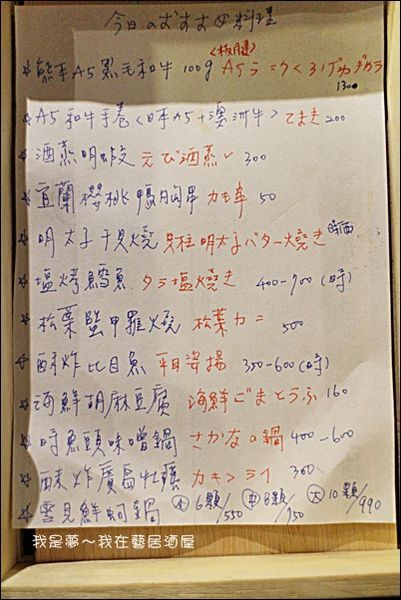 今日のおすすめ料理
熊本A5黑毛和牛 100g A5 1300
A5和牛手卷<日本A5+澳洲牛> てまき 200
酒蒸明蝦 えび酒蒸し 300
宜蘭櫻桃鴨胸串 カモ串 50
明太子干貝燒 貝柱明太子バター焼き 時価
塩烤鱈魚 タラ塩焼き 400-700 (時)
松葉蟹甲羅燒 松葉カニ 500
酥炸比目魚 平目姿揚 350-600 (時)
海鮮胡麻豆腐 海鮮ごまとうふ 160
時魚頭味噌鍋 さかなの鍋 400-600
酥炸廣島牡蠣 カキフライ 300
雪見鮮蚵鍋 小 6顆/550 中 8顆/750 大 10顆/990
我是夢～我在藝居酒屋